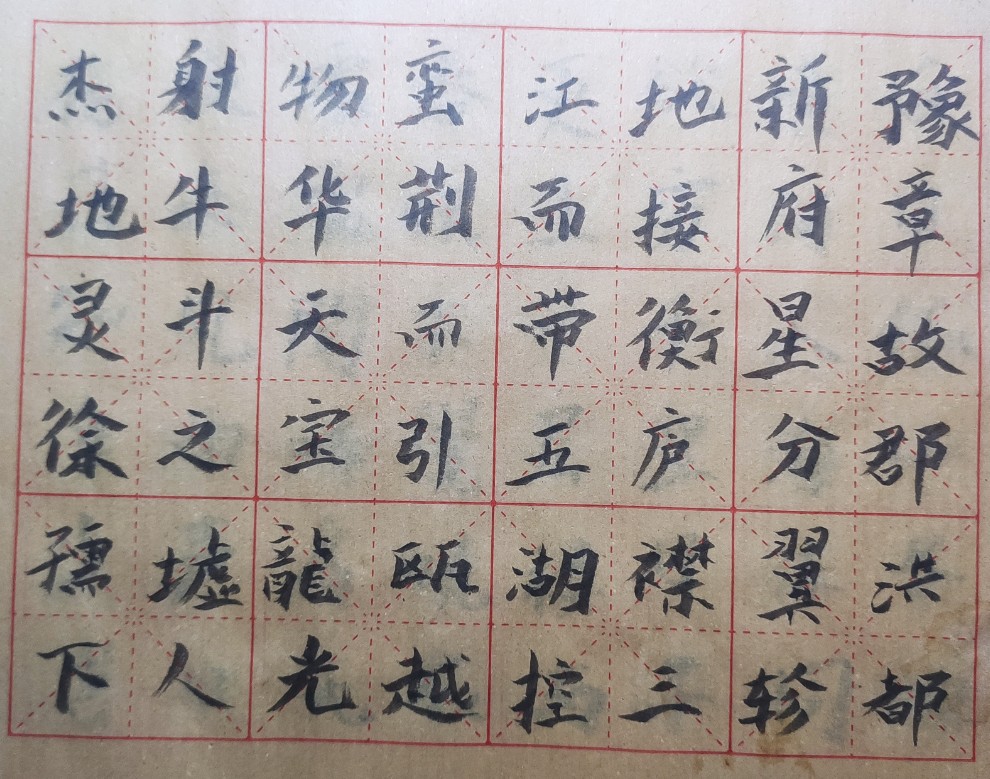 豫章故郡洪都
新府星分翼轸
地接衡庐襟三
江而带五湖控
蛮荆而引瓯越
物华天宝龍光
射牛斗之墟人
杰地灵徐孺下